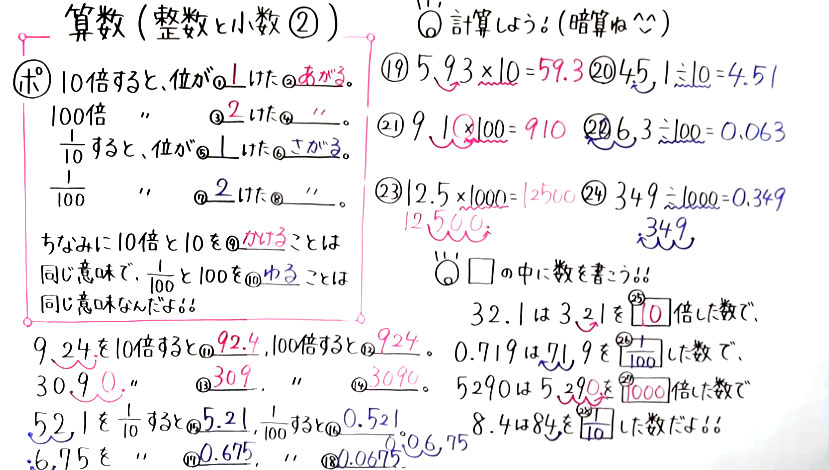 算数(整数と小数②)
ポ 10倍すると、位が①1けた②あがる。
100倍 〃 ③2けた④〃。
1/10すると、位が⑤1けた⑥さがる。
1/100 〃 ⑦2けた⑧〃。
ちなみに10倍と10を⑨かけることは
同じ意味で、1/100と100を⑩わることは
同じ意味なんだよ!!
9.24を10倍すると⑪92.4,100倍すると⑫924。
30.90 〃 ⑬309, 〃 ⑭3090。
52.1を1/10すると⑮5.21,1/100すると⑯0.521。
6.75を 〃 ⑰0.675, 〃 ⑱0.0675.
0.06.75
計算しよう!(暗算ね^^)
⑲ 5.93×10=59.3 ⑳ 45.1÷10=4.51
㉑ 9.10×100=910 ㉒ 6.3÷100=0.063
㉓ 12.5×1000=12500 ㉔ 349÷1000=0.349
12.500. .349
□の中に数を書こう!!
32.1は3.21を㉕10倍した数で、
0.719は71.9を㉖1/100した数で、
5290は5.290を㉗1000倍した数で
8.4は84を㉘1/10した数だよ!!